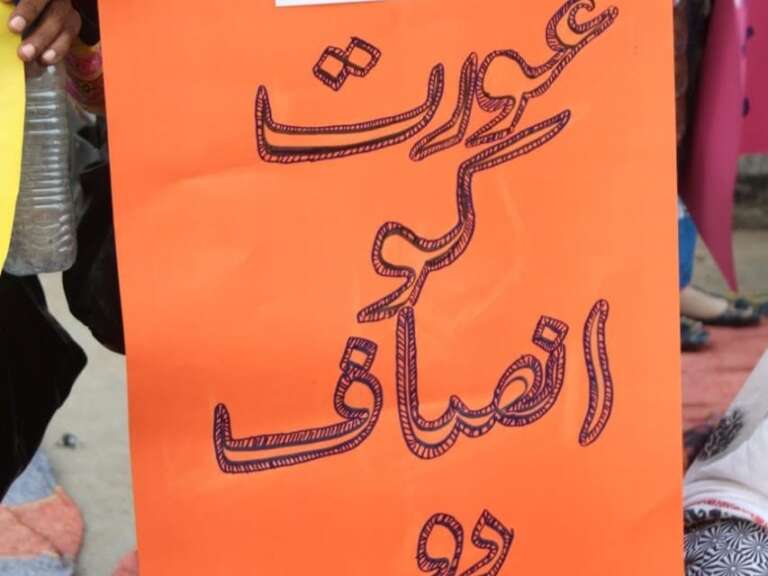 عورت
کو
انصاف
دو